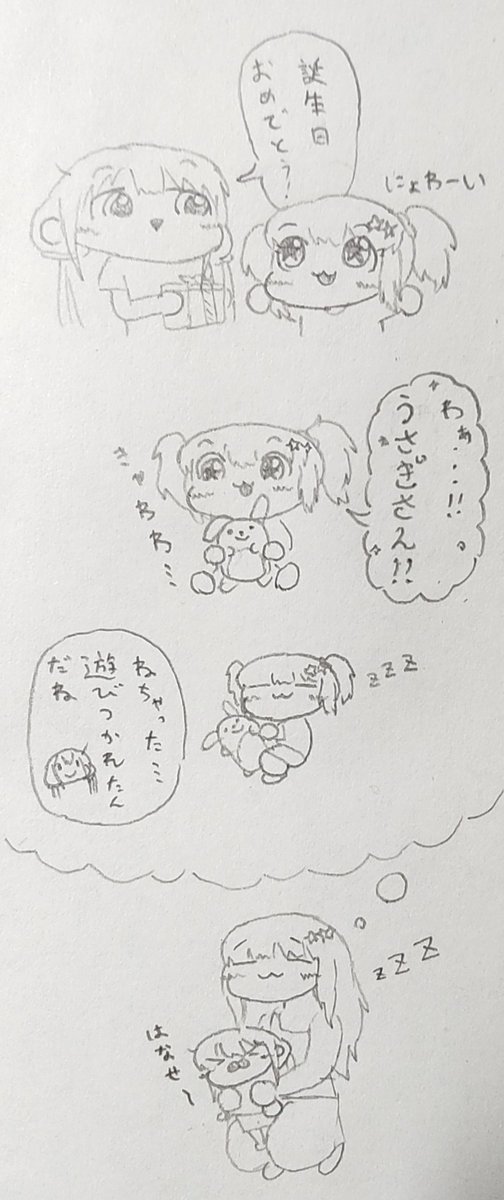 誕生日
おめでとう!
にょわーい
わぁ…!!
うさぎさん!!
きゃわわ…
zzz
ねちゃった…
遊びつかれたん
だね
zZZ
はなせ〜